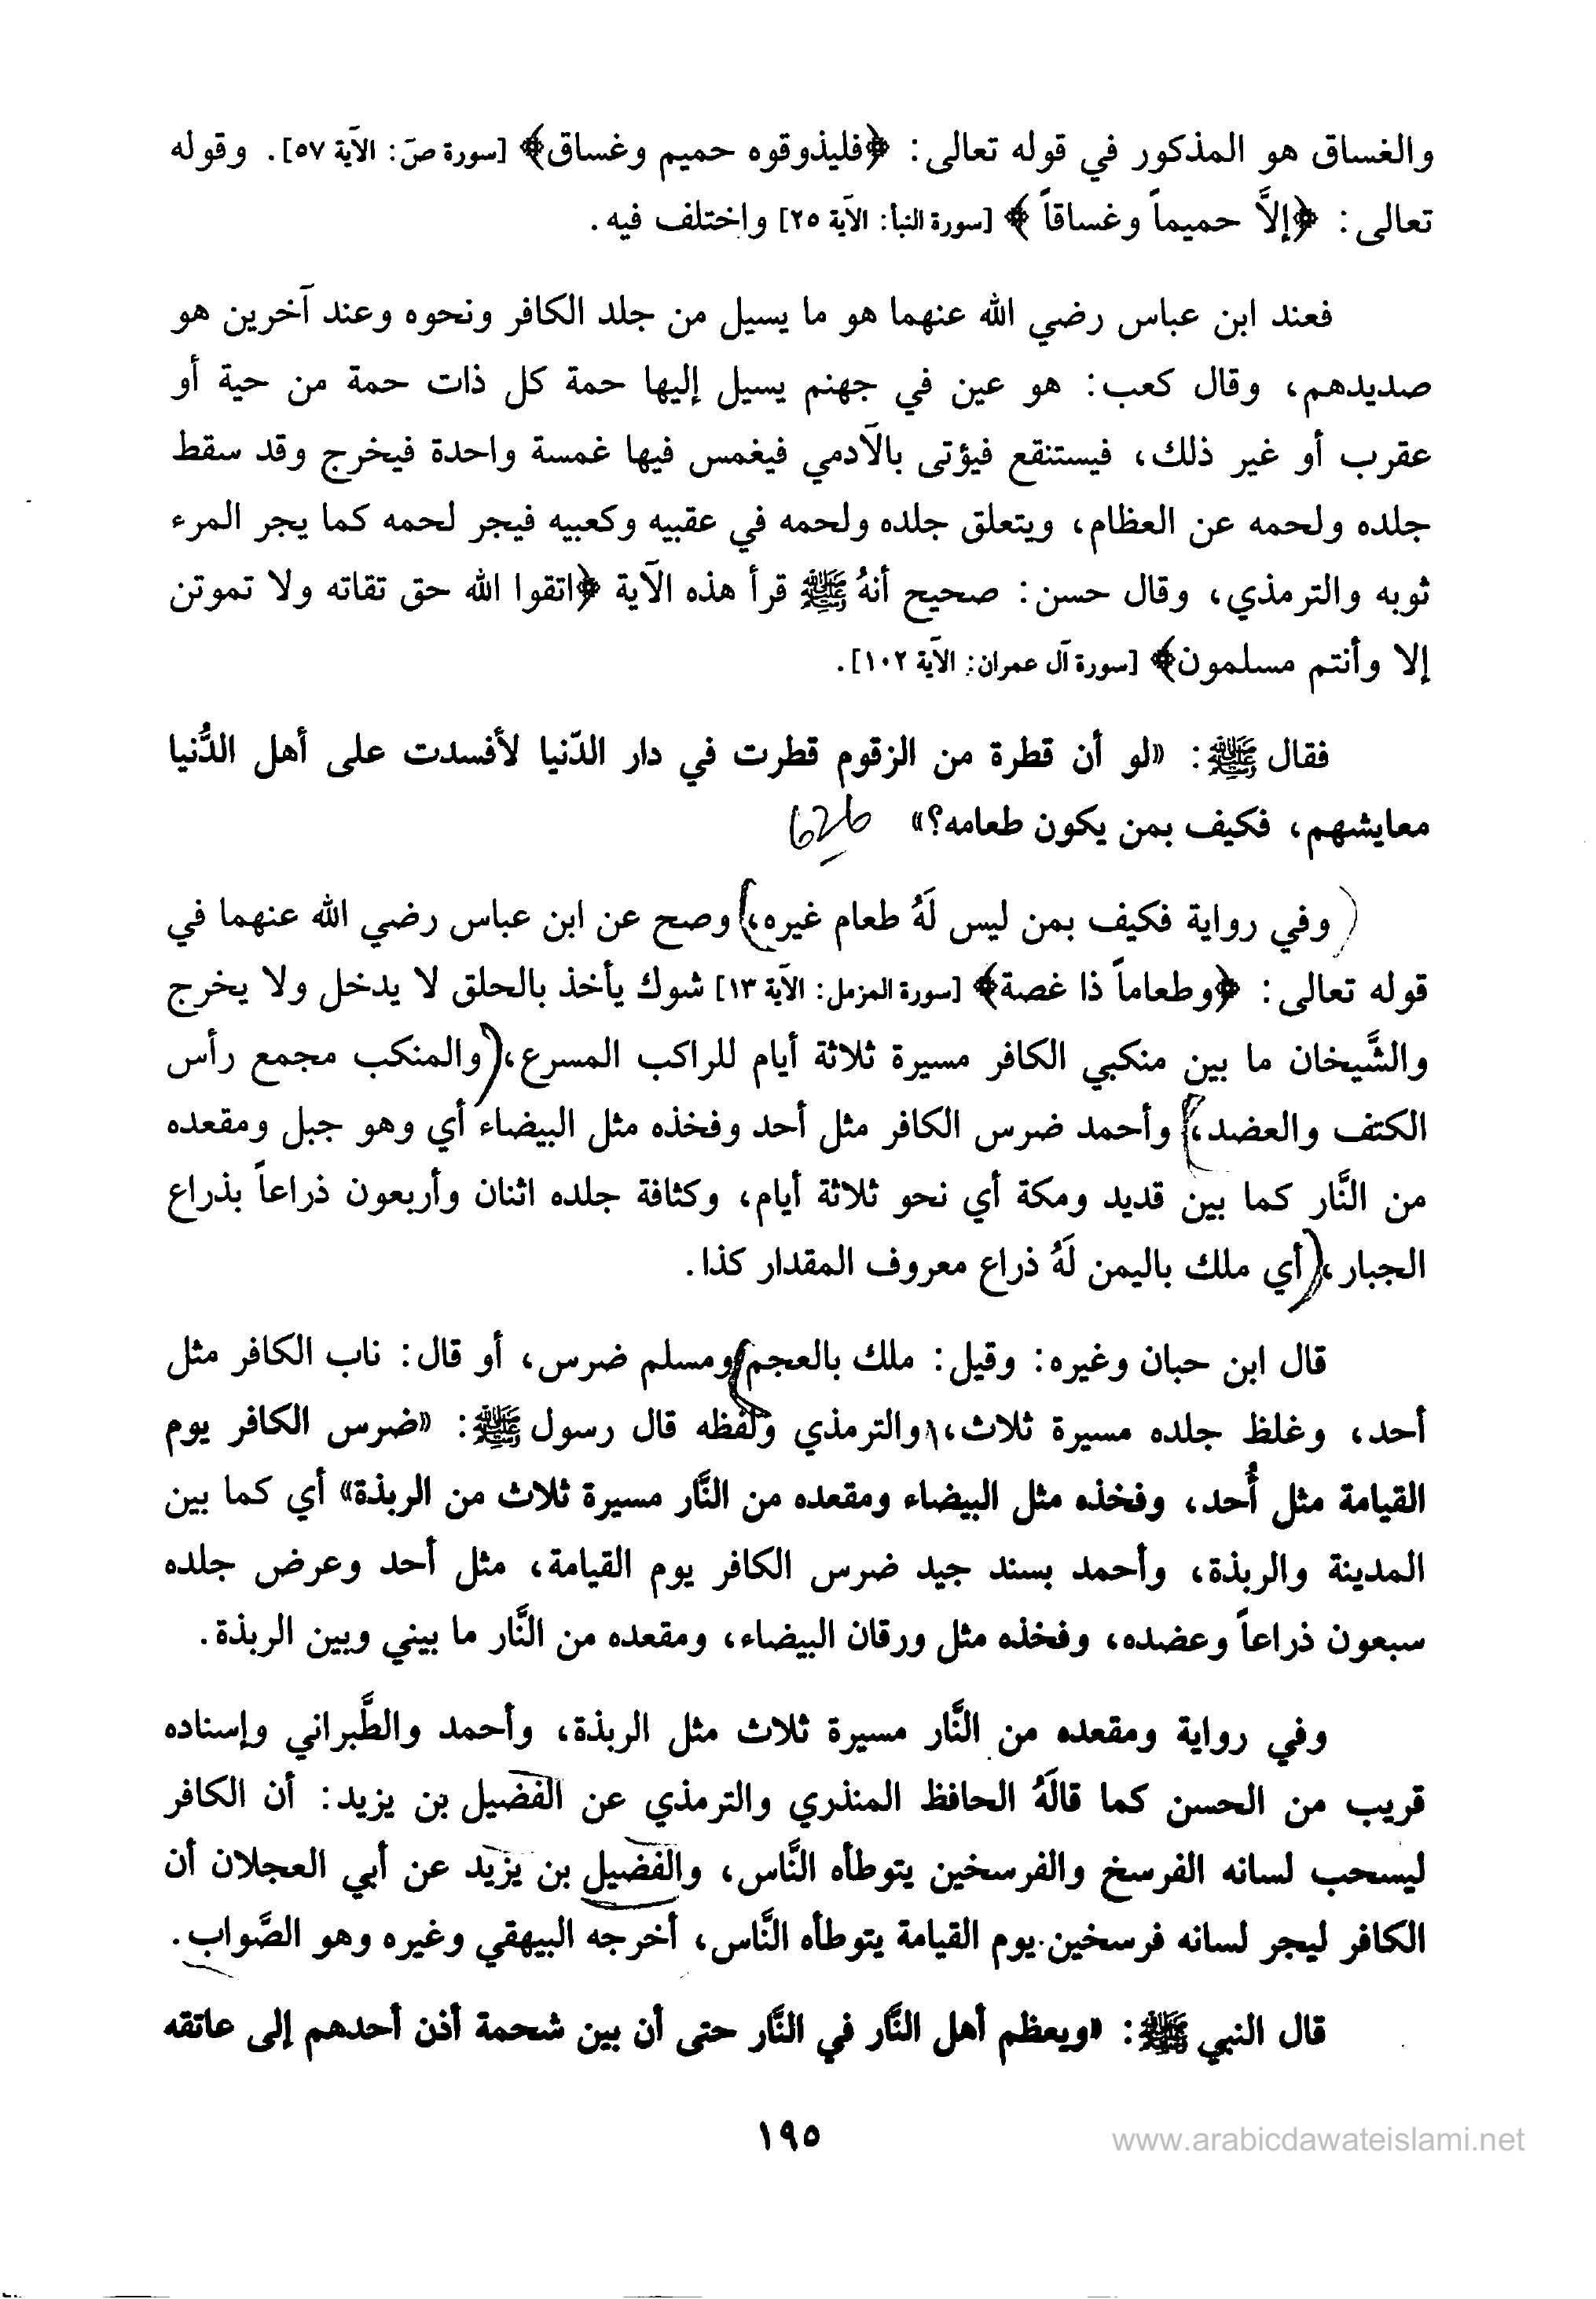 والغساق هو المذكور في قوله تعالى: ﴿فليذوقوه حميم وغساق﴾ [سورة صَ: الآية ٥٧]. وقوله
تعالى: ﴿إلاَّ حميماً وغساقاً﴾ [سورة النبأ: الآية ٢٥] واختلف فيه.
فعند ابن عباس رضي الله عنهما هو ما يسيل من جلد الكافر ونحوه وعند آخرين هو
صديدهم، وقال كعب: هو عين في جهنم يسيل إليها حمة كل ذات حمة من حية أو
عقرب أو غير ذلك، فيستنقع فيؤتى بالآدمي فيغمس فيها غمسة واحدة فيخرج وقد سقط
جلده ولحمه عن العظام، ويتعلق جلده ولحمه في عقبيه وكعبيه فيجر لحمه كما يجر المرء
ثوبه والترمذي، وقال حسن: صحيح أنهُ ﷺ قرأ هذه الآية ﴿اتقوا الله حق تقاته ولا تموتن
إلا وأنتم مسلمون﴾ [سورة آل عمران: الآية ١٠٢].
فقال ﷺ: «لو أن قطرة من الزقوم قطرت في دار الدّنيا لأفسدت على أهل الدُّنيا
معايشهم، فكيف بمن يكون طعامه؟»
(وفي رواية فكيف بمن ليس لَهُ طعام غيره،) وصح عن ابن عباس رضي الله عنهما في
قوله تعالى: ﴿وطعاماً ذا غصة﴾ [سورة المزمل: الآية ١٣] شوك يأخذ بالحلق لا يدخل ولا يخرج
والشَّيخان ما بين منكبي الكافر مسيرة ثلاثة أيام للراكب المسرع، (والمنكب مجمع رأس
الكتف والعضد،) وأحمد ضرس الكافر مثل أحد وفخذه مثل البيضاء أي وهو جبل ومقعده
من النَّار كما بين قديد ومكة أي نحو ثلاثة أيام، وكثافة جلده اثنان وأربعون ذراعاً بذراع
الجبار، (أي ملك باليمن لَهُ ذراع معروف المقدار كذا.
قال ابن حبان وغيره: وقيل: ملك بالعجم) ومسلم ضرس، أو قال: ناب الكافر مثل
أحد، وغلظ جلده مسيرة ثلاث، والترمذي ولفظه قال رسول ﷺ: «ضرس الكافر يوم
القيامة مثل أُحد، وفخذه مثل البيضاء ومقعده من النَّار مسيرة ثلاث من الربذة» أي كما بين
المدينة والربذة، وأحمد بسند جيد ضرس الكافر يوم القيامة، مثل أحد وعرض جلده
سبعون ذراعاً وعضده، وفخذه مثل ورقان البيضاء، ومقعده من النَّار ما بيني وبين الربذة.
وفي رواية ومقعده من النَّار مسيرة ثلاث مثل الربذة، وأحمد والطَّبراني وإسناده
قريب من الحسن كما قالَهُ الحافظ المنذري والترمذي عن الفضيل بن يزيد: أن الكافر
ليسحب لسانه الفرسخ والفرسخين يتوطأه النَّاس، والفضيل بن يزيد عن أبي العجلان أن
الكافر ليجر لسانه فرسخين يوم القيامة يتوطأه النَّاس، أخرجه البيهقي وغيره وهو الصَّواب.
قال النبي ﷺ: «ويعظم أهل النَّار في النَّار حتى أن بين شحمة أذن أحدهم إلى عاتقه
١٩٥
www.arabicdawateislami.net